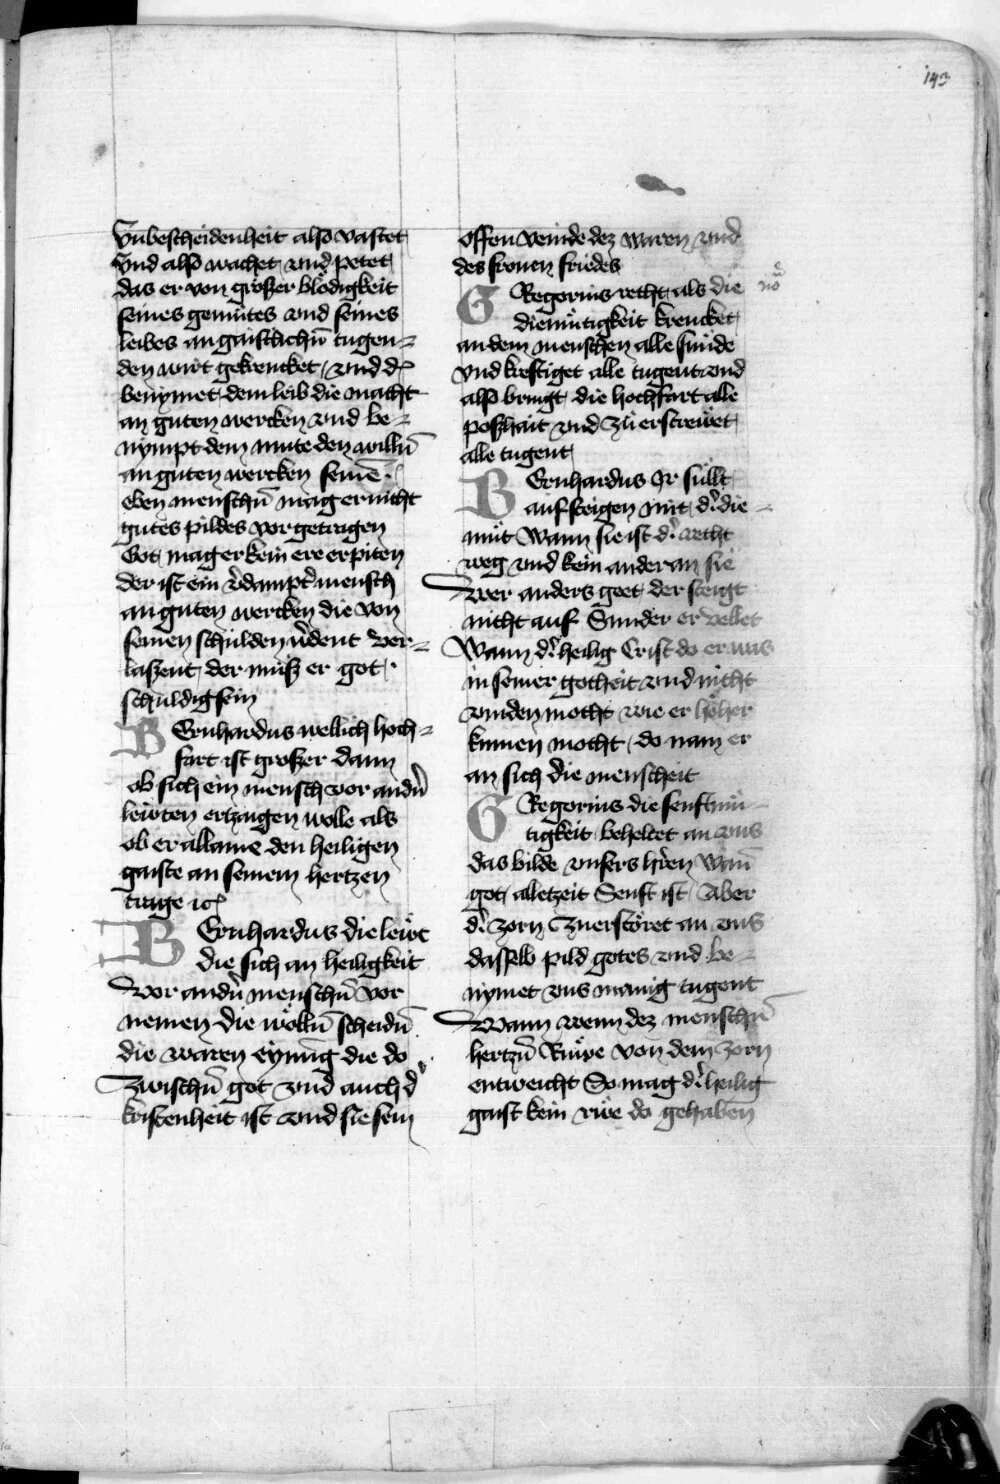 143
Vnbescheidenheit also vastet
Vnd also wachet vnd petet
das er von großer blödigkeit
seines gemütes vnd seines
leibes an gaistlichn̄ tugen-
den wirt gekrencket vnd
benymet dem leib die macht
an guten wercken vnd be-
nympt dem mute den willn̄
an guten wercken seinē
eben menschn̄ mag er nicht
gutes pildes vor getragen
Got mag er kein ere erpiten
der ist ein v̉dampt̉ mensch
an guten wercken die von
seinen schulden v̉dent ver-
laszent der müsz er got
schuldig sein
Bernhardus wellich hoch-
fart ist großer dann
ob sich ein mensch vor andn̉
lewten ertzaigen wolle als
ob er allaine den heiligen
gaiste an seinem hertzen
trage
Bernhardus die lewt
die sich an heiligkeit
Vor andn̉ menschn̄ vor
nemen die wölln̄ scheidn̄
die waren eynung die do
Zwischn̄ got vnd auch d̉
kristenheit ist vnd sie sein
offen veinde dez waren vnd
des fronen frides
Gregorius recht als die
nō
diemütigkeit krencket
an dem menschen alle sunde
vnd kreftiget alle tugent vnd
also bringt die hochfart alle
poszhait vnd zu erstrewet
alle tugent
Bernhardus Ir süllt
aufsteigen mit d̉ die-
müt Wann sie ist d̉ recht
weg vnd kein ander an sie
Wer anders geet der steigt
nicht auf Sunder er vellet
Wann d̉ heilig Crist do er was
in seiner gotheit vnd nicht
vinden mocht wie er höher
kumen mocht do nam er
an sich die menscheit
Gregorius die senftmü-
tigkeit beheltet an vns
das bilde vnsers hr̉en Wan̄
got alletzeit Senft ist Aber
d̉ zorn Zuerstöret an vns
dasselb pild gotes vnd be-
nymet vns manig tugent
Wann wenn dez menschn̄
hertzn̄ Ruwe von dem zorn
entweicht So mag d̉ heilig
gaist kein rwe do gehaben